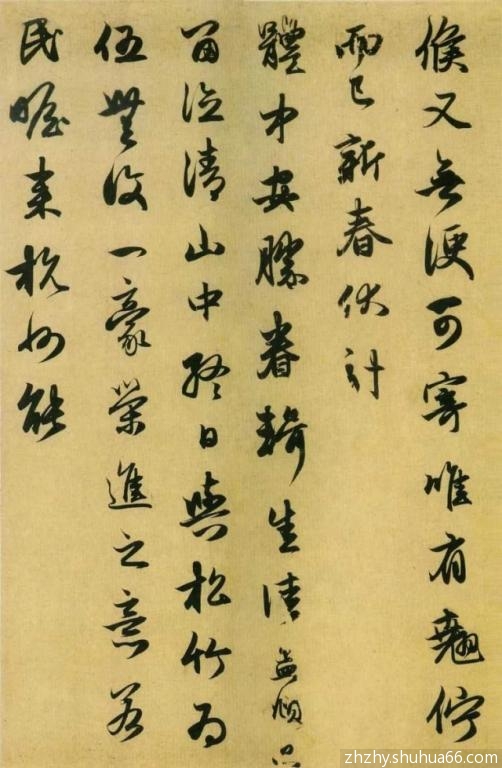 候又無便可寄唯有翹佇
而已新春伏計
體中安勝眷輯生清孟頫只
留德清山中終日與松竹為
伍無復一豪榮進之意若
民瞻来杭州能
zhzhy.shuhua66.com